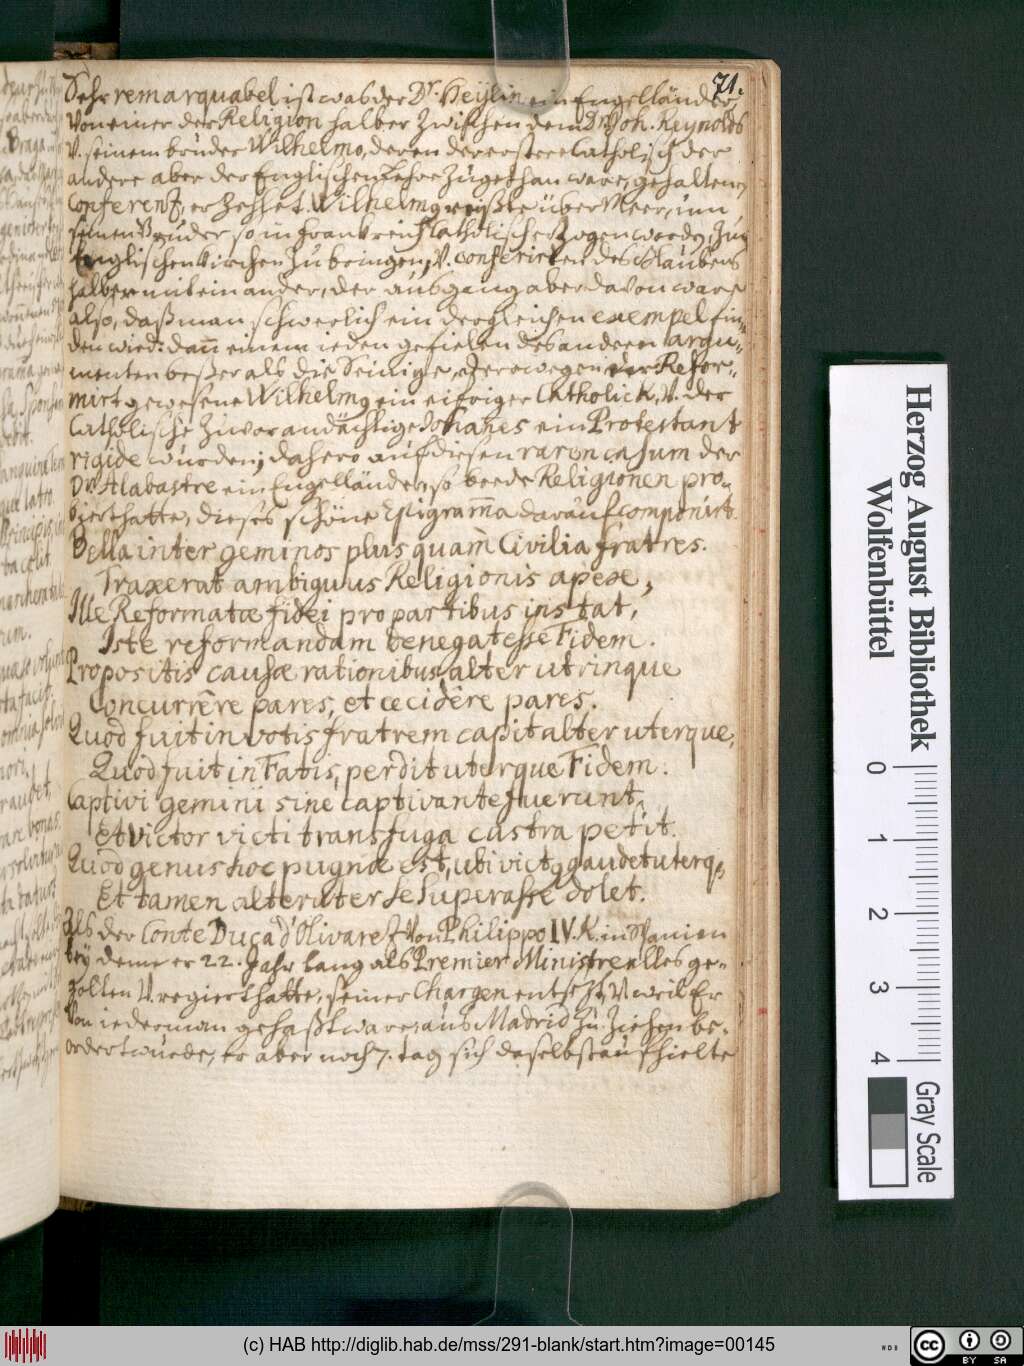 71.
Sehr remarquabel ist was der Dr. Heylin ein Engelländer
von einer der Religion halber zwischen dem Dr. Joh. Reynolds
V. seinem bruder Wilhelmo, deren der erstere Catholisch der
andere aber der Englischen Lehre zugethan ware, gehaltenen
Conferentz, erzehlet. Wilhelmg reißte über Meer, um
seinen Bruder so in Frankreich Catholischerzogen worden, zur
Englischen Kirchen zu bringen, V. conferirten des Glaubens
halber mit einander, der ausgang aber davon ware
also, daß man schwerlich ein dergleichen exempel fin„
den wird: dañ einem ieden gefielen des anderen argu„
menten beßer als die Seinige, derowegen der Refor„
mirt gewesene Wilhelmg ein eifriger Catholick, V. der
Catholische zuvor andächtige Johañes ein Protestant
rigide wurden; dahero auf diesen raren casum der
Dr. Alabastre ein Engelländer, so beede Religionen pro„
biert hatte, dieses schöne Epigram̃a darauf componirt.
Bella inter geminos plus quàm Civilia fratres.
Traxerat ambiguus Religionis apex,
Ille Reformatæ fidei pro partibus instat,
Iste reformandam denegat esse Fidem.
Propositis causæ rationibus, alter utrinque
Concurrêre pares, et cecidêre pares.
Quod fuit in votis fratrem capit alter uterque,
Quod fuit in Fatis, perdit uterque Fidem.
Captivi gemini sine captivante fuerunt,
Et victor victi transfuga castra petit.
Quod genus hoc pugnæ est, ubi victg gaudet uterq,
Et tamen alteruter se superasse dolet.
Als der Conte Duca d'Olivarez von Philippo IV. K. in Spanien
bey deme er 22. Jahr lang als Premier Ministre alles ge„
golten V. regiert hatte, seiner Chargen entsetzt, V. weil Er
von iederman gehaßt ware, aus Madrid zu ziehen be„
ordert wurde, er aber noch 7. tag sich daselbst aufhielte
Herzog August Bibliothek
Wolfenbüttel
0 1 2 3 4
Gray Scale
(c) HAB http://diglib.hab.de/mss/291-blank/start.htm?image=00145
WDB
cc BY SA